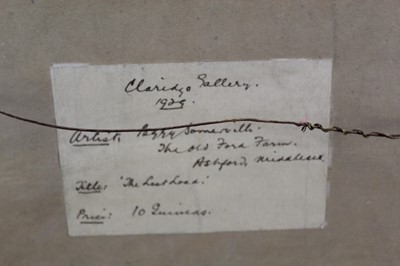 Claridge Gallery.
1929.
Artist: Peggy Somerville.
The Old Ford Farm.
Ashford, Middlesex
Title: 'The Last Load.'
Price: 10 Guineas.